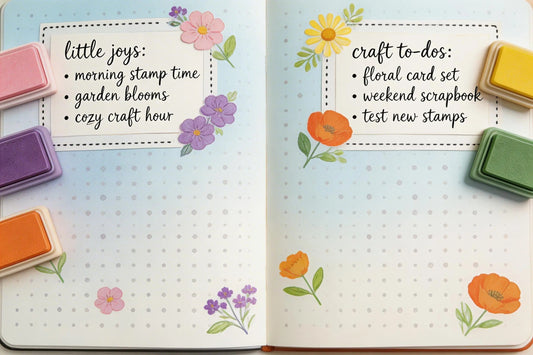 little joys:
• morning stamp time
• garden blooms
• cozy craft hour
craft to-dos:
• floral card set
• weekend scrapbook
• test new stamps